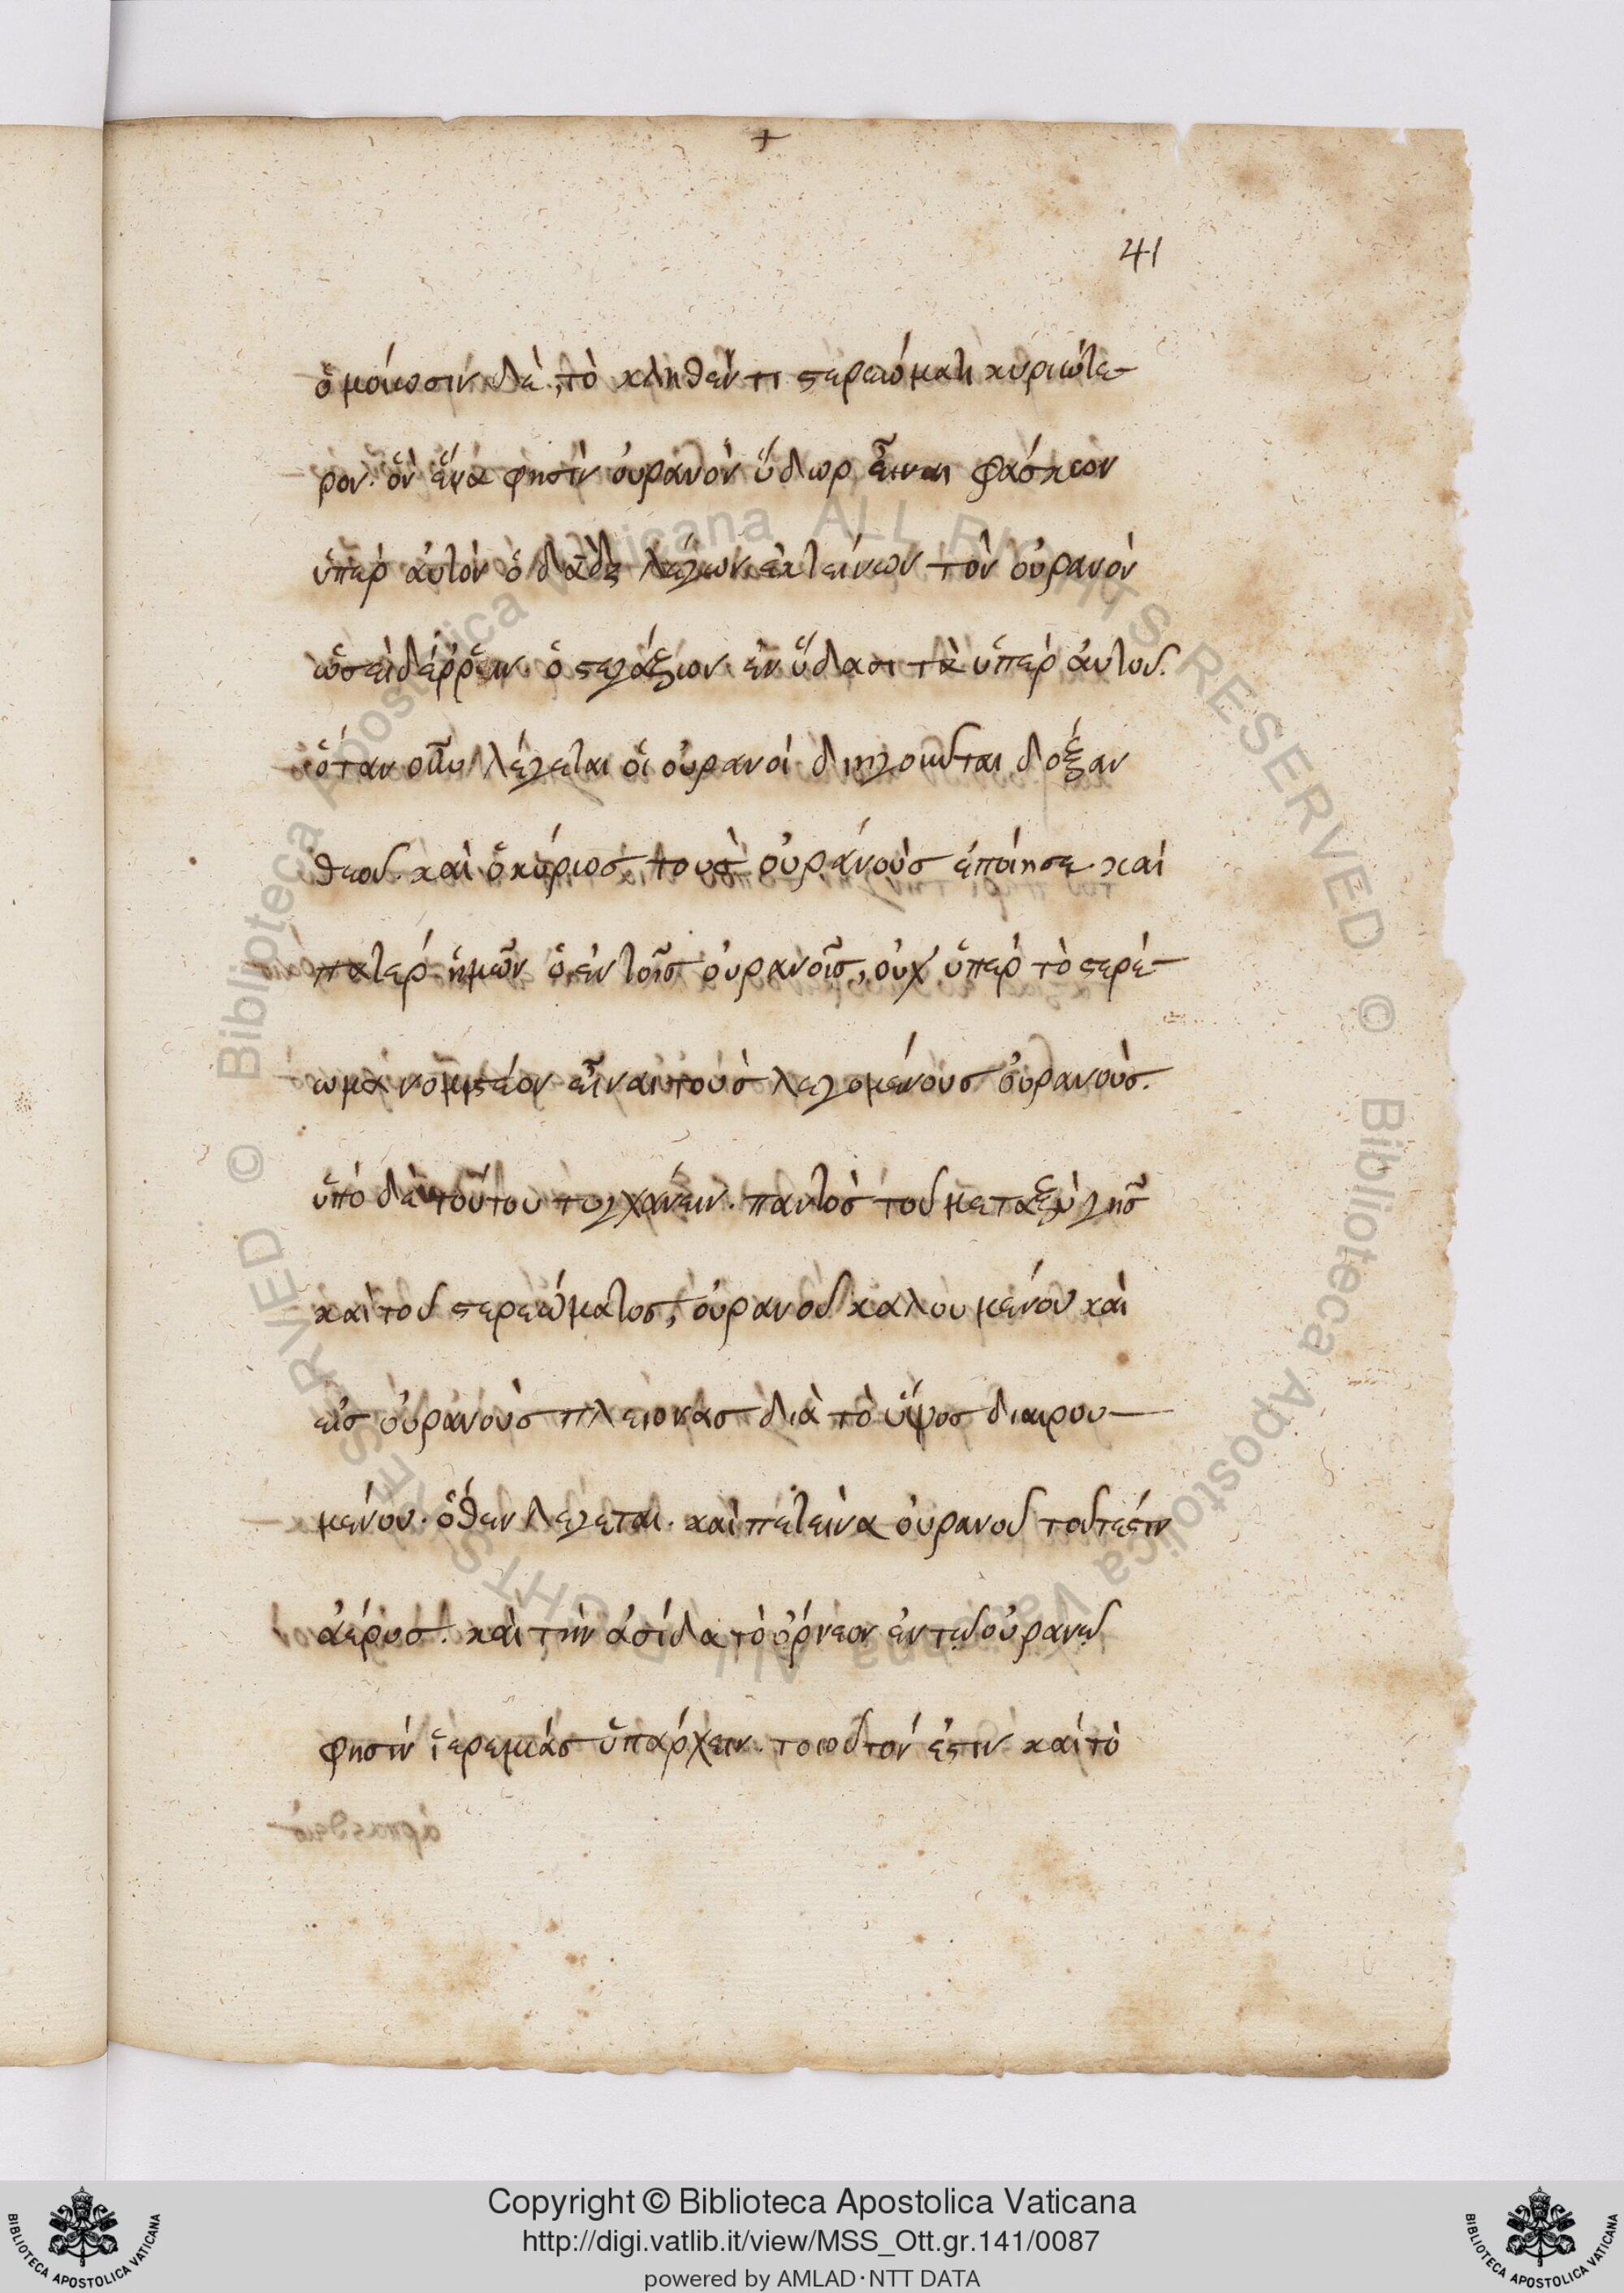 +
41
ὁμοίωσιν δὲ, τὸ κληθέντι στερεώματι κυριώτε-
ρον. ὃν ἕνα φησὶν οὐρανὸν ὕδωρ εἶναι φάσκων
ὑπὲρ αὐτὸν ὁ δᾱδ λέγων ἐκτείνων τὸν οὐρανὸν
ὡσεὶ δέρρειν. ὁ στεγάζων ἐν ὕδασι τὰ ὑπὲρ αὐτοῦ.
ὅταν οὖν λέγεται οἱ οὐρανοὶ διηγοῦνται δόξαν
θεοῦ. καὶ ὁ κύριος τοὺς οὐρανοὺς ἐποίησε καὶ
πάτερ ἡμῶν ὁ ἐν τοῖς οὐρανοῖς, οὐχ ὑπὲρ τὸ στερέ-
ωμα νομιστέον εἶναι τοὺς λεγομένους οὐρανούς.
ὑπὸ δὲ τούτου τυγχάνειν. παντὸς τοῦ μεταξὺ γῆς
καὶ τοῦ στερεώματος, οὐρανοῦ καλουμένου καὶ
εἰς οὐρανοὺς πλείονας διὰ τὸ ὕψος διαιρου-
μένου. ὅθεν λέγεται. καὶ πετεινὰ οὐρανοῦ τουτέστιν
ἀέρος. καὶ τὴν ἀσίδα τὸ ὄρνεον ἐν τῷ οὐρανῷ
φησὶν ἱερεμίας ὑπάρχειν. τοιοῦτόν ἐστιν καὶ τὸ
Copyright © Biblioteca Apostolica Vaticana
http://digi.vatlib.it/view/MSS_Ott.gr.141/0087
powered by AMLAD·NTT DATA
BIBLIOTECA APOSTOLICA VATICANA
BIBLIOTECA APOSTOLICA VATICANA
© Biblioteca Apostolica Vaticana ALL RIGHTS RESERVED © Biblioteca Apostolica Vaticana ALL RIGHTS RESERVED